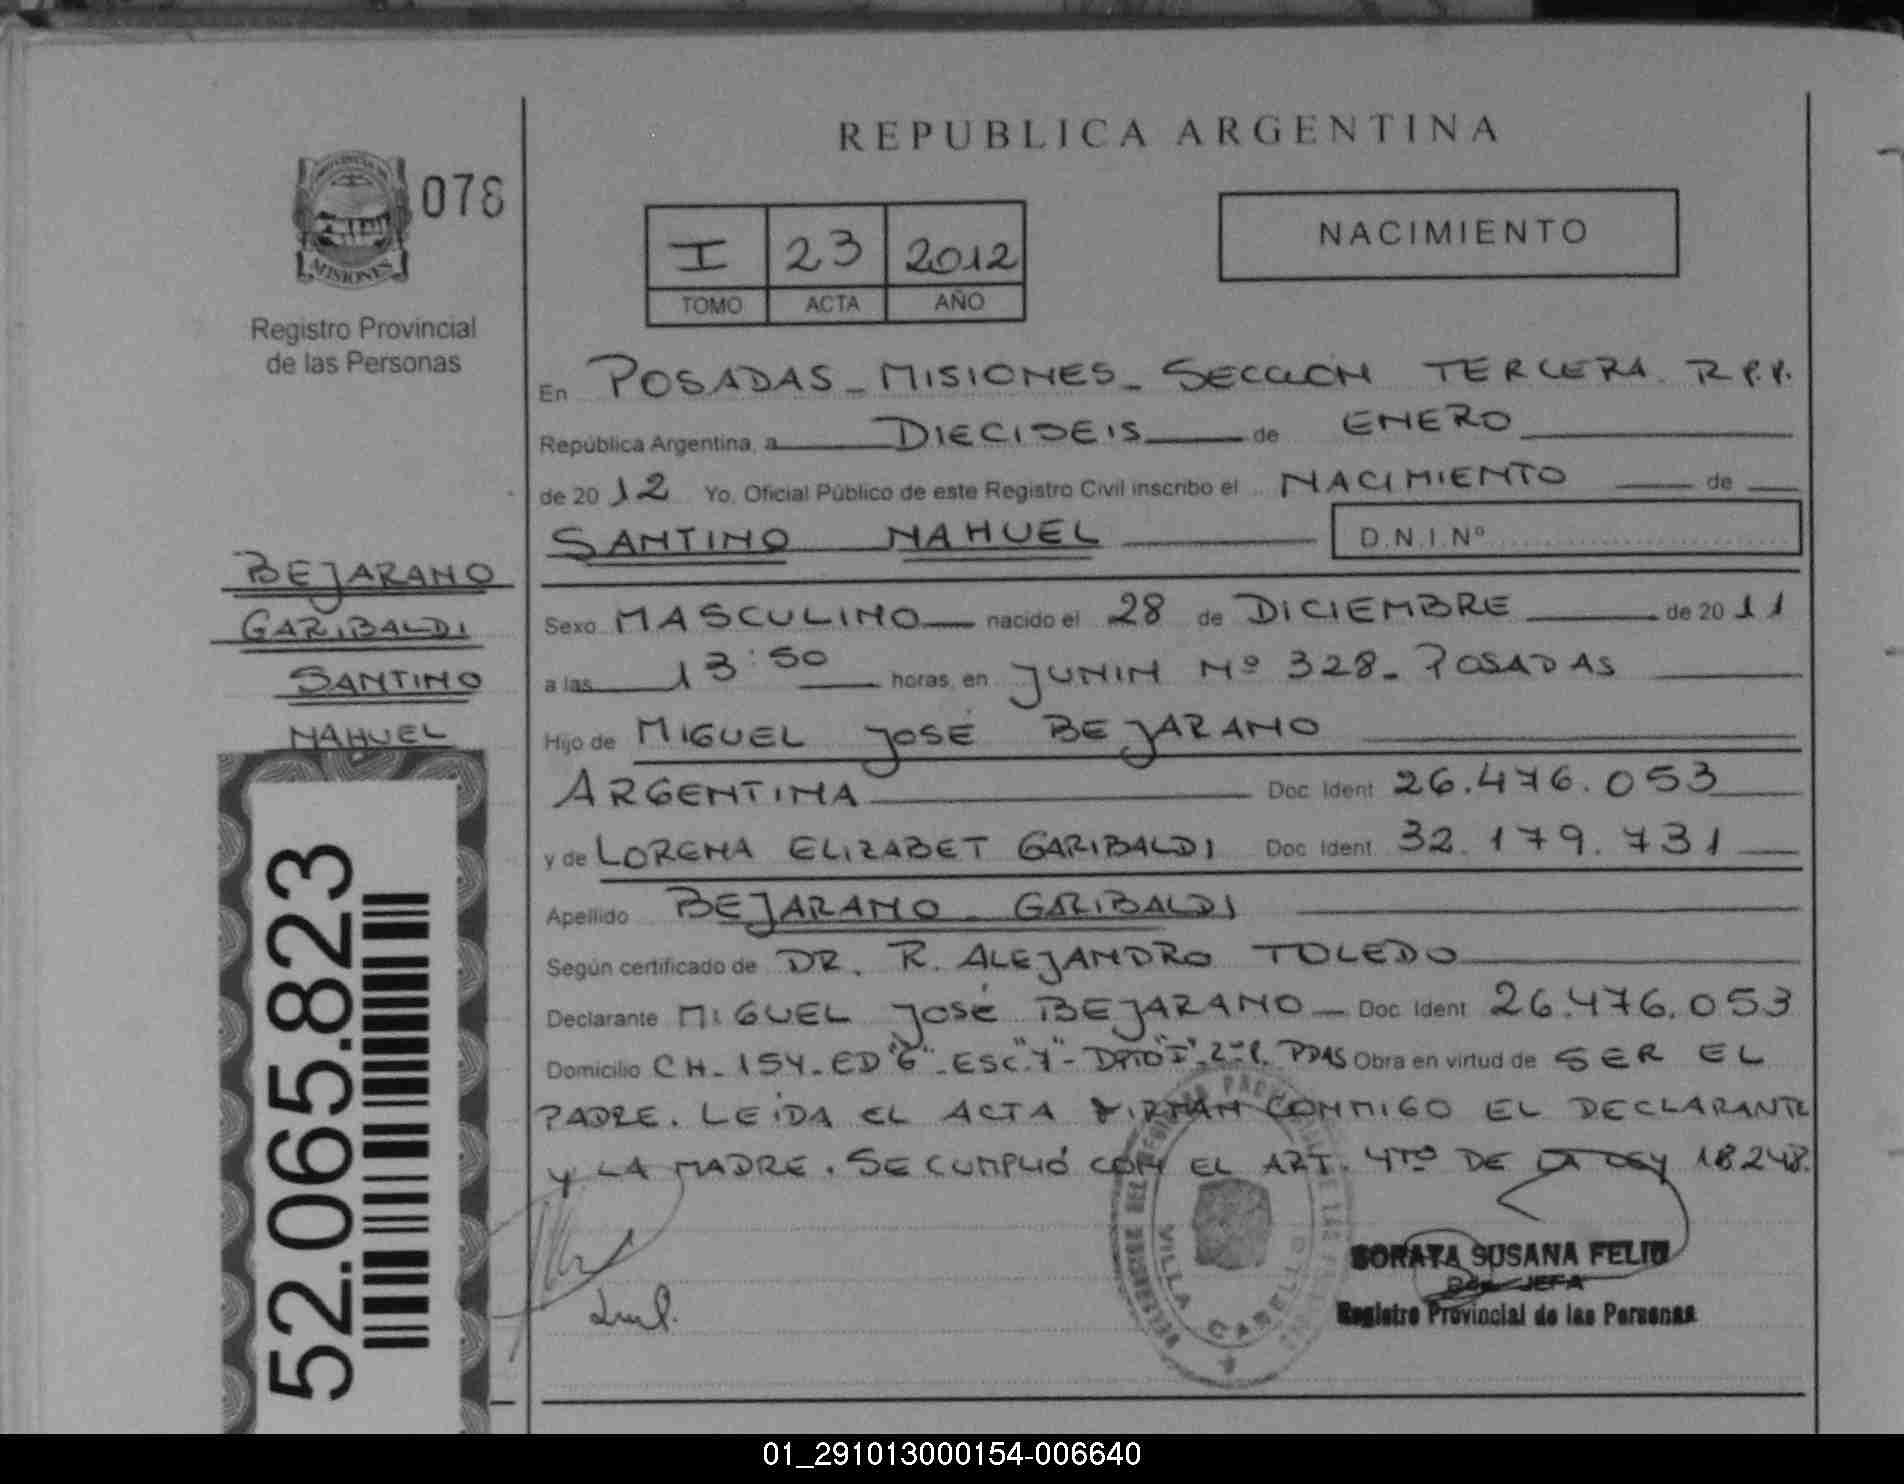 REPUBLICA ARGENTINA
MISIONES
078
Registro Provincial
de las Personas
I 23 2012
TOMO ACTA AÑO
NACIMIENTO
En POSADAS - MISIONES - SECCION TERCERA R.P.P.
República Argentina, a DIECISEIS de ENERO
de 20 12 Yo, Oficial Público de este Registro Civil inscribo el NACIMIENTO de
SANTINO NAHUEL D.N.I.Nº
BEJARANO
GARIBALDI
SANTINO
NAHUEL
Sexo MASCULINO nacido el 28 de DICIEMBRE de 20 11
a las 13:50 horas, en JUNIN Nº 328 - POSADAS
Hijo de MIGUEL JOSÉ BEJARANO
ARGENTINA Doc Ident 26.476.053
y de LORENA ELIZABET GARIBALDI Doc Ident 32.179.731
Apellido BEJARANO - GARIBALDI
Según certificado de DR. R. ALEJANDRO TOLEDO
Declarante MIGUEL JOSÉ BEJARANO Doc Ident 26.476.053
Domicilio CH. 154 - ED "6" - ESC. "1" - DPTO "I" - PDAS Obra en virtud de SER EL
PADRE. LEIDA EL ACTA FIRMAN CONMIGO EL DECLARANTE
Y LA MADRE. SE CUMPLIÓ CON EL ART. 4TO DE LA LEY 18.248.
VILLA CABELLO
SORAYA SUSANA FELIU
JEFA
Registro Provincial de las Personas
52.065.823
01_291013000154-006640